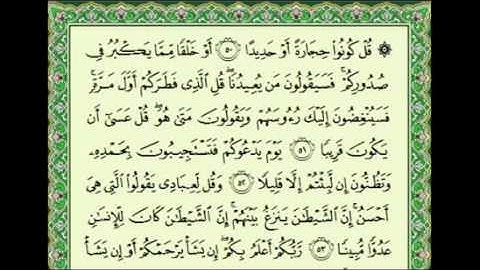 ۞ قُلْ كُونُوا۟ حِجَارَةً أَوْ حَدِيدًا ﴿٥٠﴾ أَوْ خَلْقًا مِّمَّا يَكْبُرُ فِى
صُدُورِكُمْ ۚ فَسَيَقُولُونَ مَن يُعِيدُنَا ۖ قُلِ ٱلَّذِى فَطَرَكُمْ أَوَّلَ مَرَّةٍ ۚ
فَسَيُنْغِضُونَ إِلَيْكَ رُءُوسَهُمْ وَيَقُولُونَ مَتَىٰ هُوَ ۖ قُلْ عَسَىٰٓ أَن
يَكُونَ قَرِيبًا ﴿٥١﴾ يَوْمَ يَدْعُوكُمْ فَتَسْتَجِيبُونَ بِحَمْدِهِۦ
وَتَظُنُّونَ إِن لَّبِثْتُمْ إِلَّا قَلِيلًا ﴿٥٢﴾ وَقُل لِّعِبَادِى يَقُولُوا۟ ٱلَّتِى هِىَ
أَحْسَنُ ۚ إِنَّ ٱلشَّيْطَـٰنَ يَنزَغُ بَيْنَهُمْ ۚ إِنَّ ٱلشَّيْطَـٰنَ كَانَ لِلْإِنسَـٰنِ
عَدُوًّا مُّبِينًا ﴿٥٣﴾ رَّبُّكُمْ أَعْلَمُ بِكُمْ ۖ إِن يَشَأْ يَرْحَمْكُمْ أَوْ إِن يَشَأْ